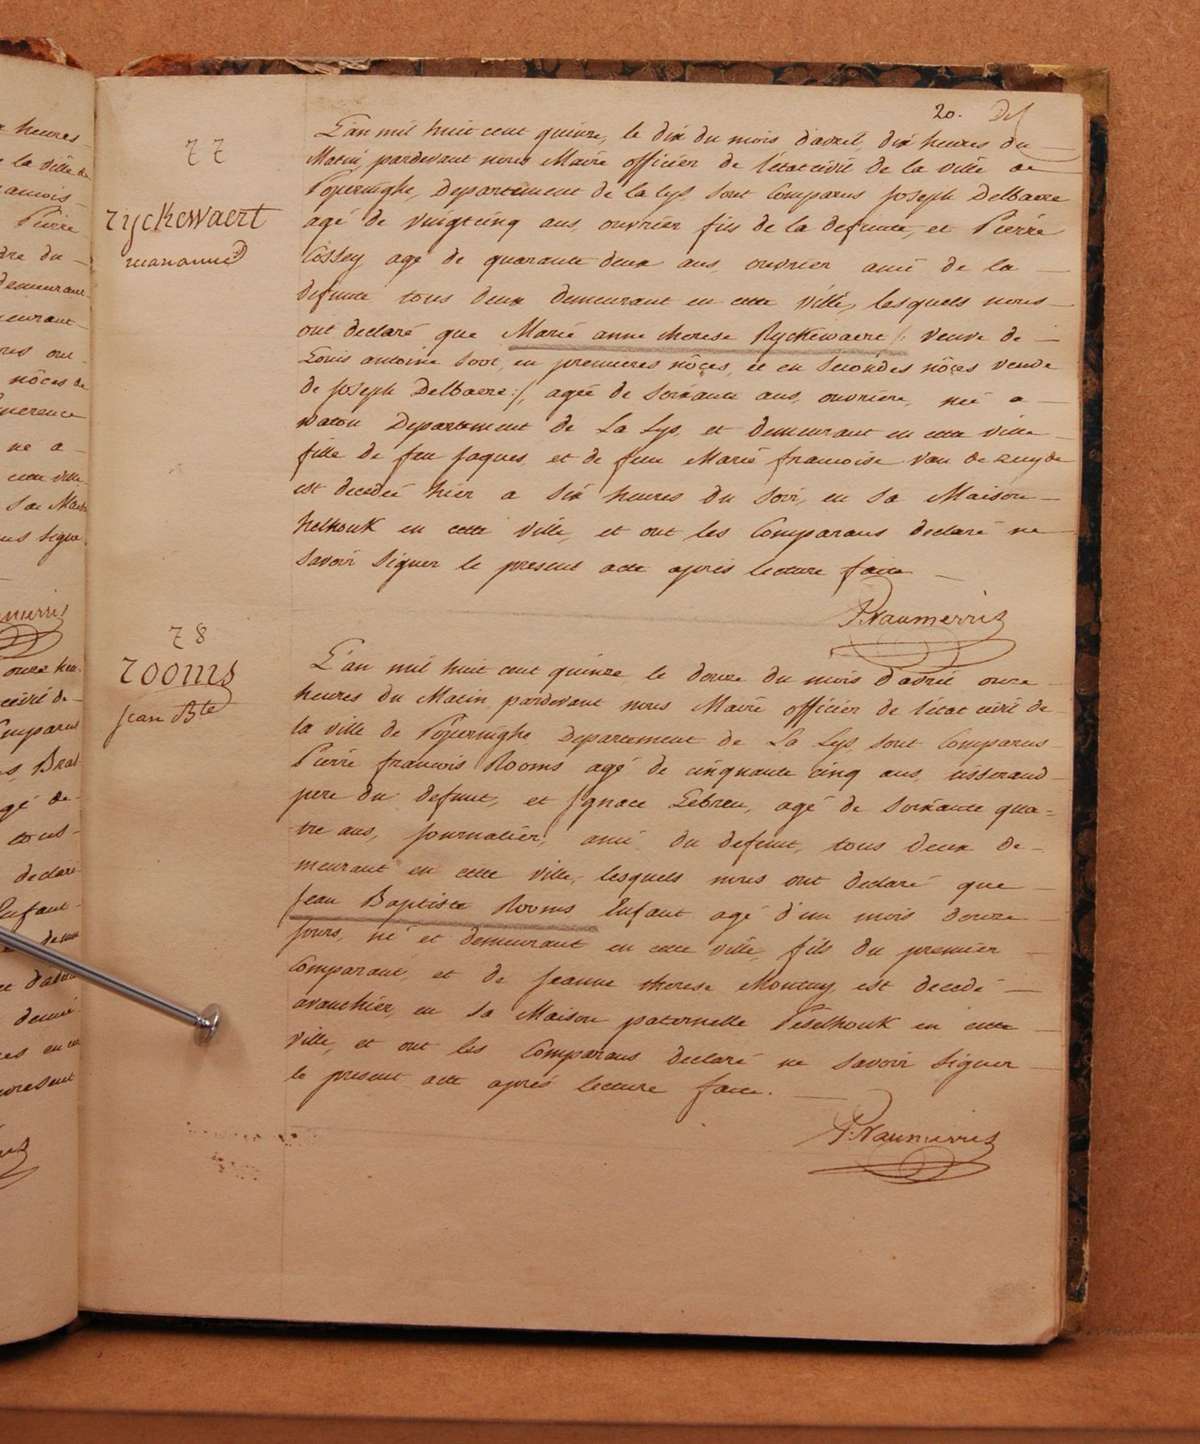 20.
77
Ryckewaert
marianne
L'an mil huit cent quinze, le dix du mois d'avril, dix heures du
Matin, pardevant nous Maire officier de l'état civil de la ville de
Poperinghe, Departement de la Lys, sont Comparus Joseph Delbaere
agé de vingtcinq ans, ouvrier fils de la defunte, et Pierre
Cossey agé de quarante deux ans, ouvrier ami de la
defunte tous deux demeurant en cette ville, lesquels nous
ont declaré que Marie anne therese Ryckewaere /: veuve de
Louis antoine Soot, en premieres nôces, et en secondes nôces veuve
de Joseph Delbaere :/, agée de soixante ans, ouvriere, née a
watou Departement de La Lys, et demeurant en cette ville
fille de feu Jaques, et de feue Marie francoise van de zuyde
est decedée hier a six heures du soir, en sa Maison
helhouk en cette ville, et ont les Comparans declaré ne
savoir signer le present acte après lecture faite
P. Vanmerris
78
Rooms
Jean Bte
L'an mil huit cent quinze le douze du mois d'avril onze
heures du Matin pardevant nous Maire officier de l'état civil de
la ville de Poperinghe, Departement de La Lys, sont Comparus
Pierre francois Rooms agé de cinquante cinq ans, tisserand
pere du defunt, et Ignace Lebreu, agé de soixante qua=
tre ans, journalier, ami du defunt, tous deux de-
meurant en cette ville, lesquels nous ont declaré que
Jean Baptiste Rooms Enfant agé d'un mois douze
jours, né et demeurant en cette ville, fils du premier
Comparant, et de Jeanne therese Montuy est decedé
avanthier, en sa Maison paternelle Peselhouk en cette
ville, et ont les Comparans declaré ne savoir signer
le present acte après lecture faite.
P. Vanmerris